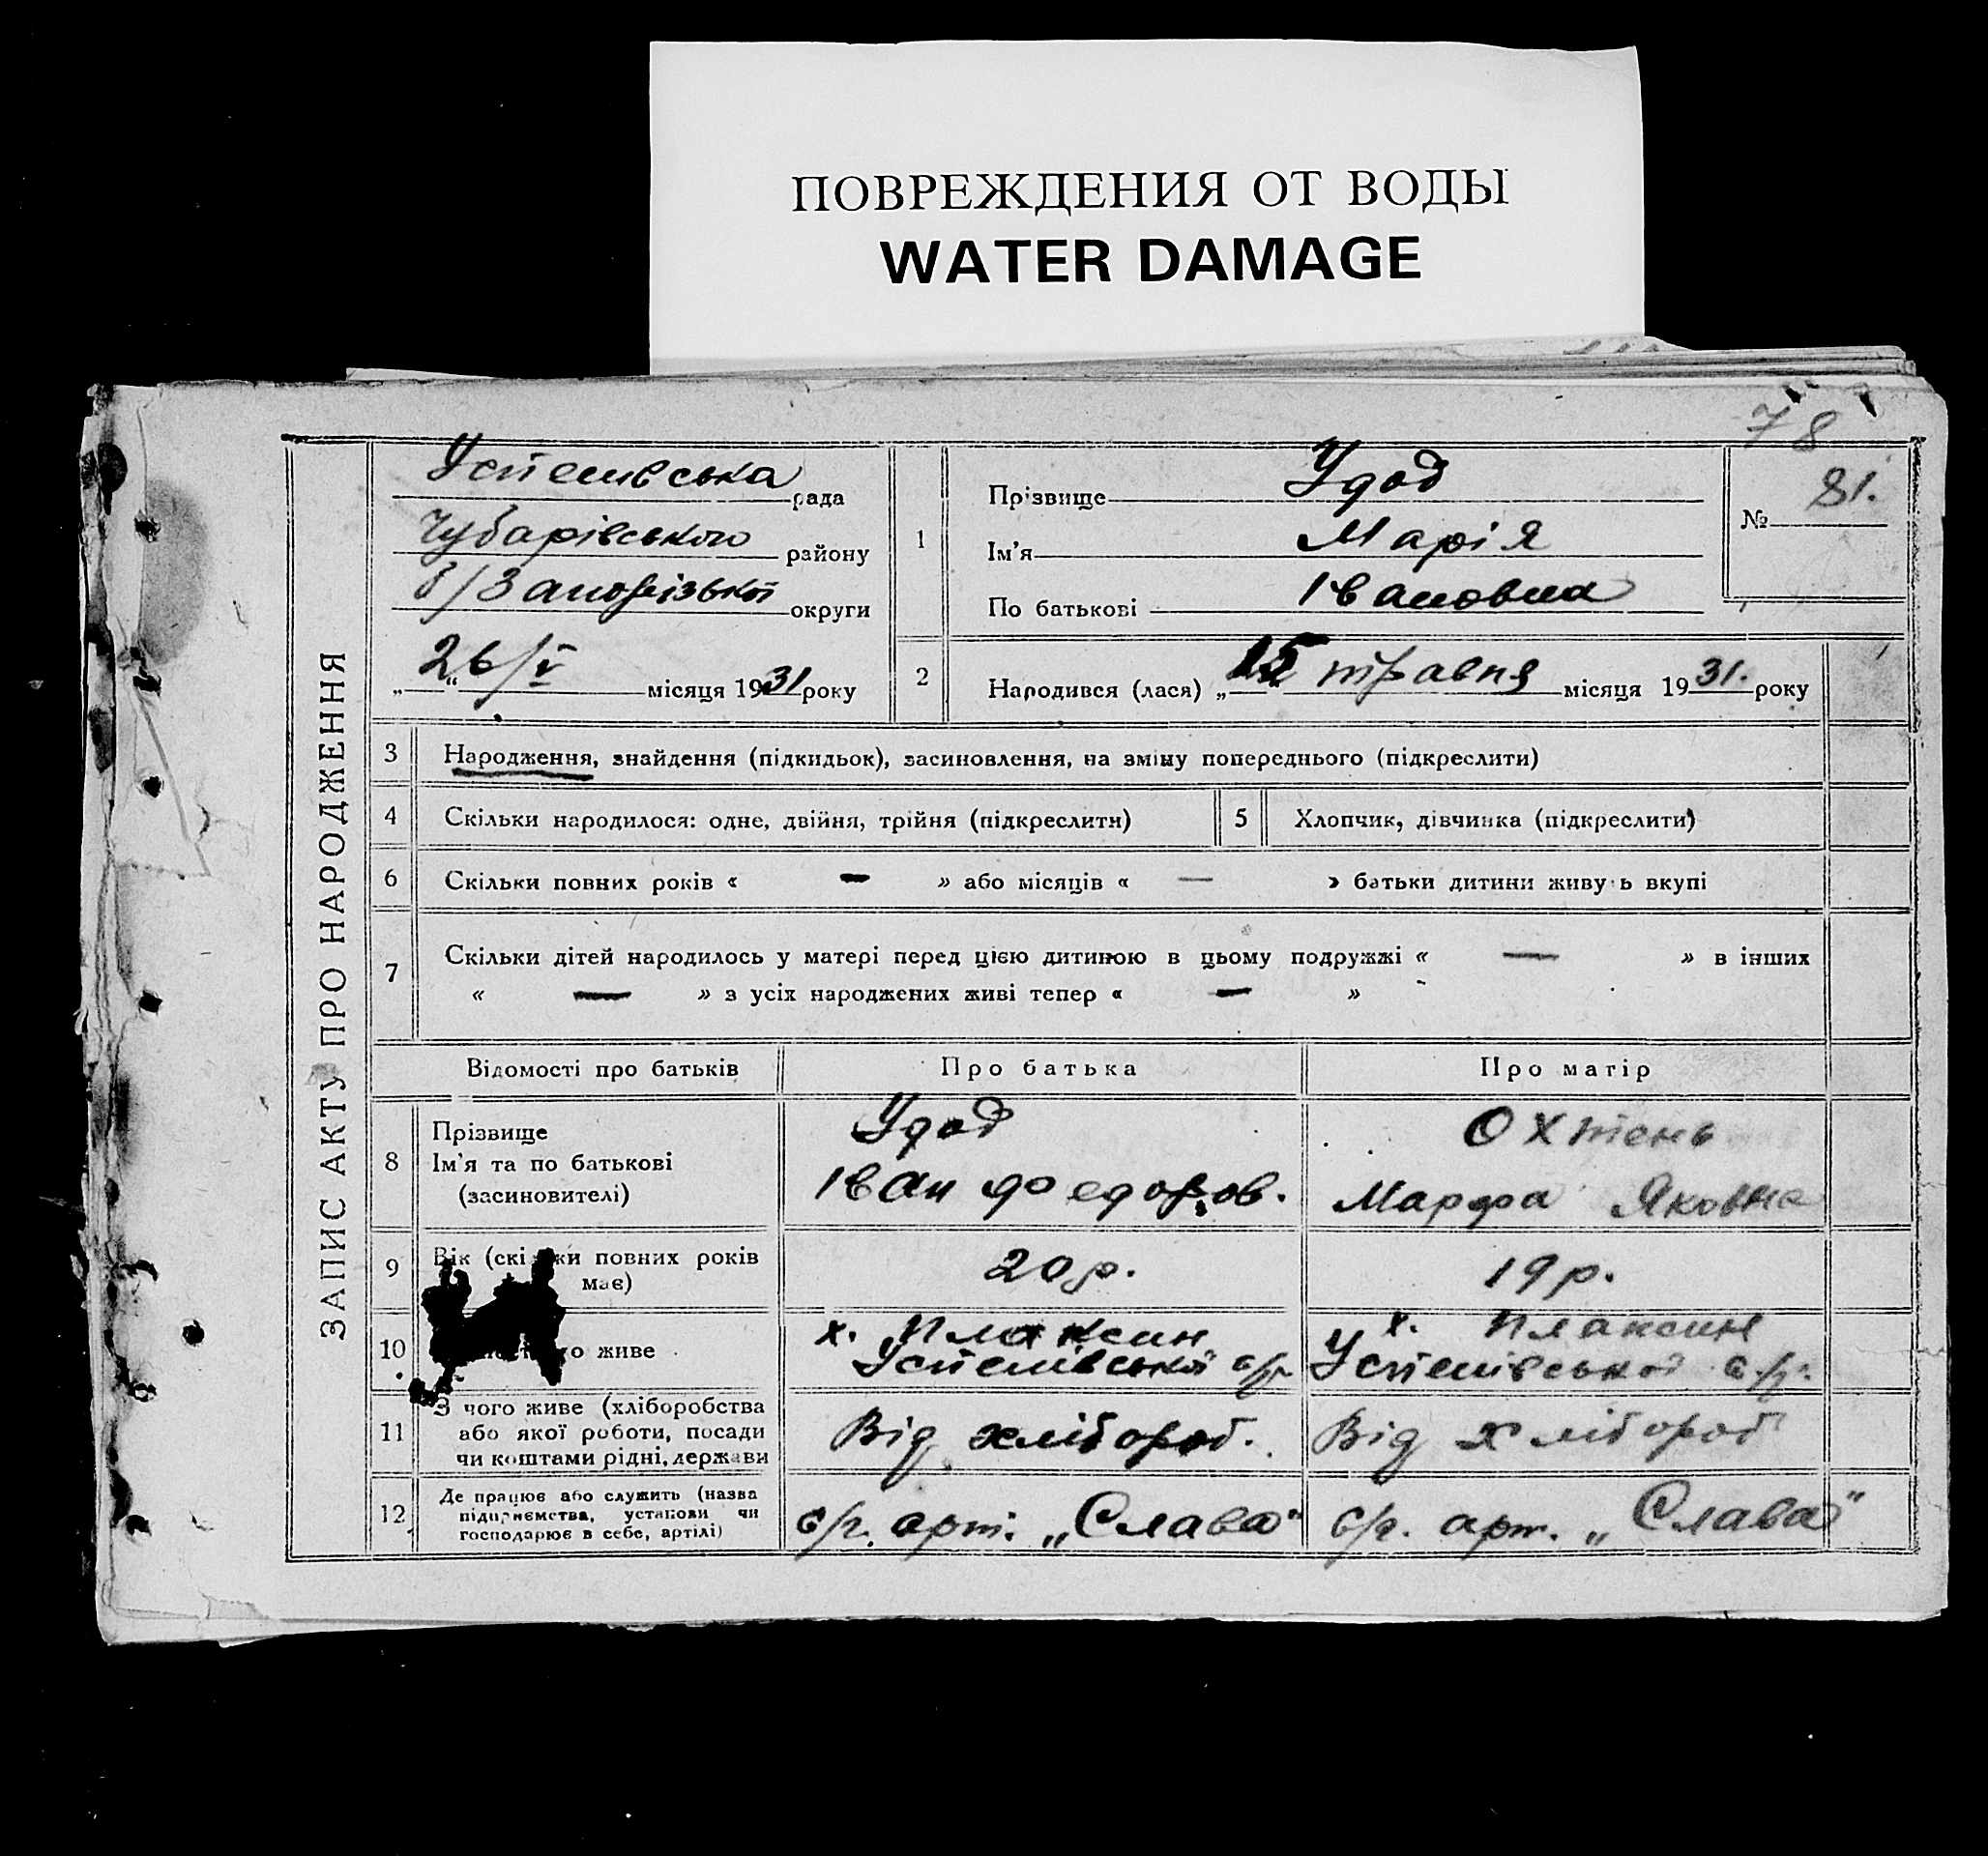 ПОВРЕЖДЕНИЯ ОТ ВОДЫ
WATER DAMAGE
78
ЗАПИС АКТУ ПРО НАРОДЖЕННЯ
Успенівська рада
Чубарівського району
б/Запорізької округи
„26/V“ місяця 1931 року
1
Прізвище Удод
Ім'я Марія
По батькові Івановна
№ 81.
2
Народився (лася) „15“ травня місяця 1931. року
3 Народження, знайдення (підкидьок), засиновлення, на зміну попереднього (підкреслити)
4 Скільки народилося: одне, двійня, трійня (підкреслити) 5 Хлопчик, дівчинка (підкреслити)
6 Скільки повних років « — » або місяців « — » батьки дитини живу ь вкупі
7 Скільки дітей народилось у матері перед цією дитиною в цьому подружжі « — » в інших
« — » з усіх народжених живі тепер « — »
Відомості про батьків Про батька Про матір
8 Прізвище
Ім'я та по батькові
(засиновителі)
Удод
Іван Федоров.
Охтень
Марфа Яковна
9 Вік (скі ки повних років
має)
20 р. 19 р.
10 о живе
х. Плаксин
Успенівської с/р.
х. Плаксин
Успенівської с/р.
11 З чого живе (хліборобства
або якої роботи, посади
чи коштами рідні, держави
Від хлібороб. Від хлібороб
12 Де працює або служить (назва
підприємства, установи чи
господарює в себе, артілі)
с/г. арт. „Слава" с/г. арт. „Слава"